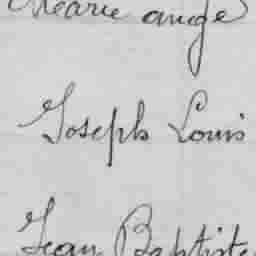 Marie ange
Joseph Louis
Jean Baptiste